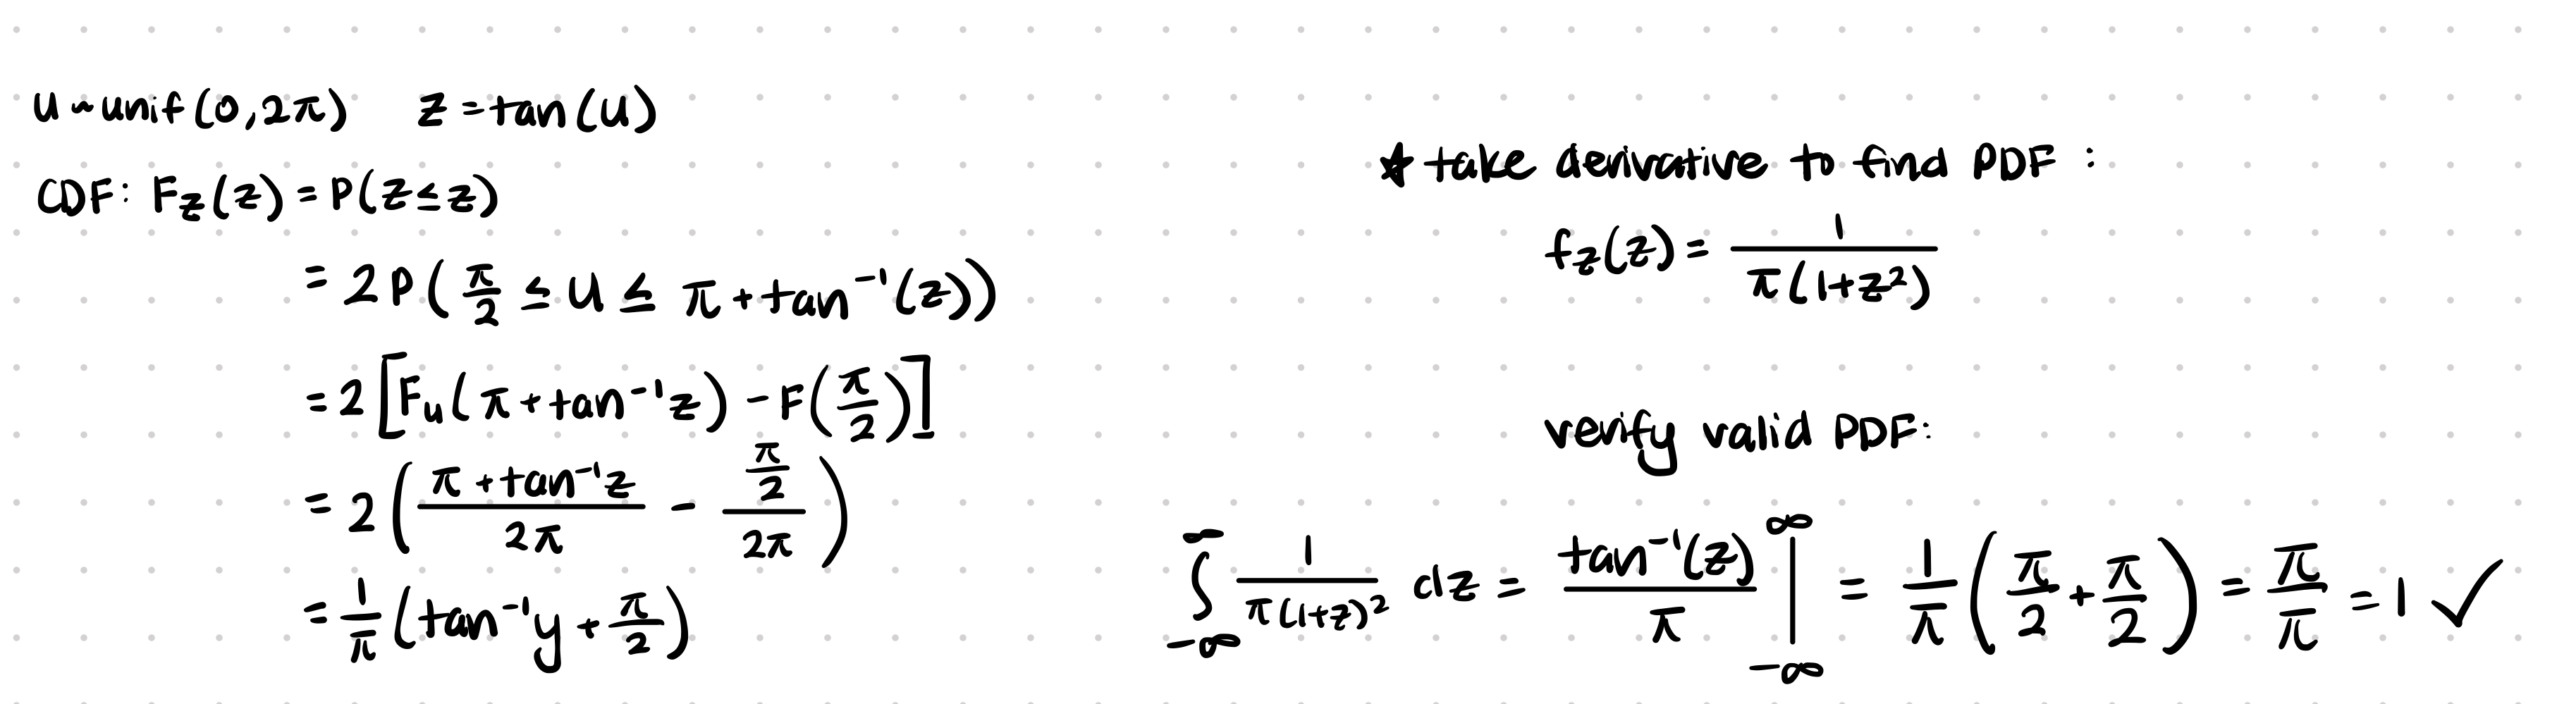 U ~ unif(0, 2π)   Z = tan(U)
CDF: F_Z(z) = P(Z ≤ z)
= 2P(π/2 ≤ U ≤ π + tan⁻¹(z))
= 2[F_U(π + tan⁻¹z) − F(π/2)]
= 2((π + tan⁻¹z)/(2π) − (π/2)/(2π))
= 1/π (tan⁻¹y + π/2)
★ take derivative to find PDF:
f_Z(z) = 1/(π(1+z²))
verify valid PDF:
∫_{-∞}^{∞} 1/(π(1+z)²) dz = tan⁻¹(z)/π |_{-∞}^{∞} = 1/π (π/2 + π/2) = π/π = 1 ✓